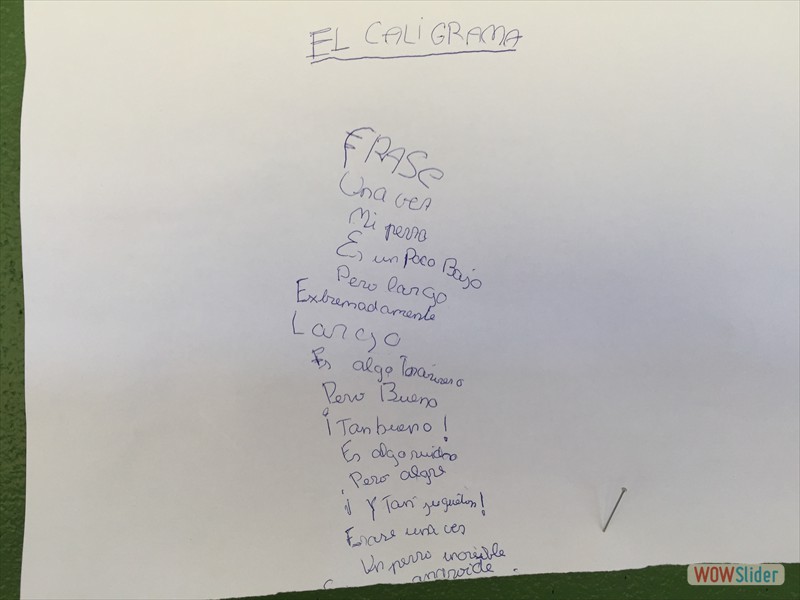 EL CALIGRAMA
ERASE
Una ves
Mi perro
Es un Poco Bajo
Pero largo
Extremadamente
Largo
Es algo
Pero Bueno
¡Tan bueno!
Es algo ruidoso
Pero algre
¡Y Tan jugueton!
Erase una ves
Un perro increible
WOWSlider